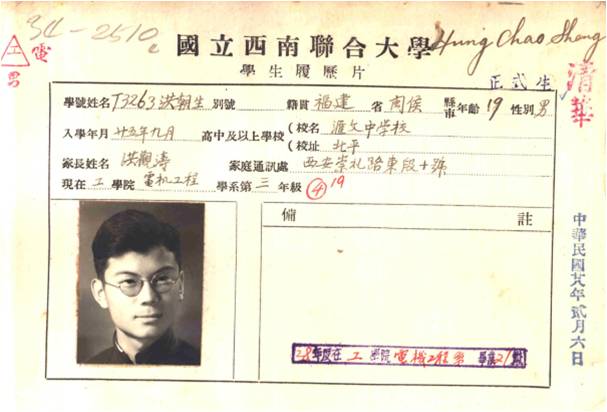 34-2510
工 電
男
國立西南聯合大學
Hung Chao Sheng
學生履歷片
正式生
清華
學號姓名 T3263 洪朝生 別號 籍貫 福建 省 閩侯 縣市 年齡 19 性別 男
入學年月 廿五年九月 高中及以上學校 (校名 滙文中学校
(校址 北平
家長姓名 洪觀濤 家庭通訊處 西安崇礼路東段十號
現在 工 學院 電机工程 學系第 三 年級 ④ 19
備 註
28年度在 工 學院 電機工程 系 畢業
中華民國廿八年貳月六日